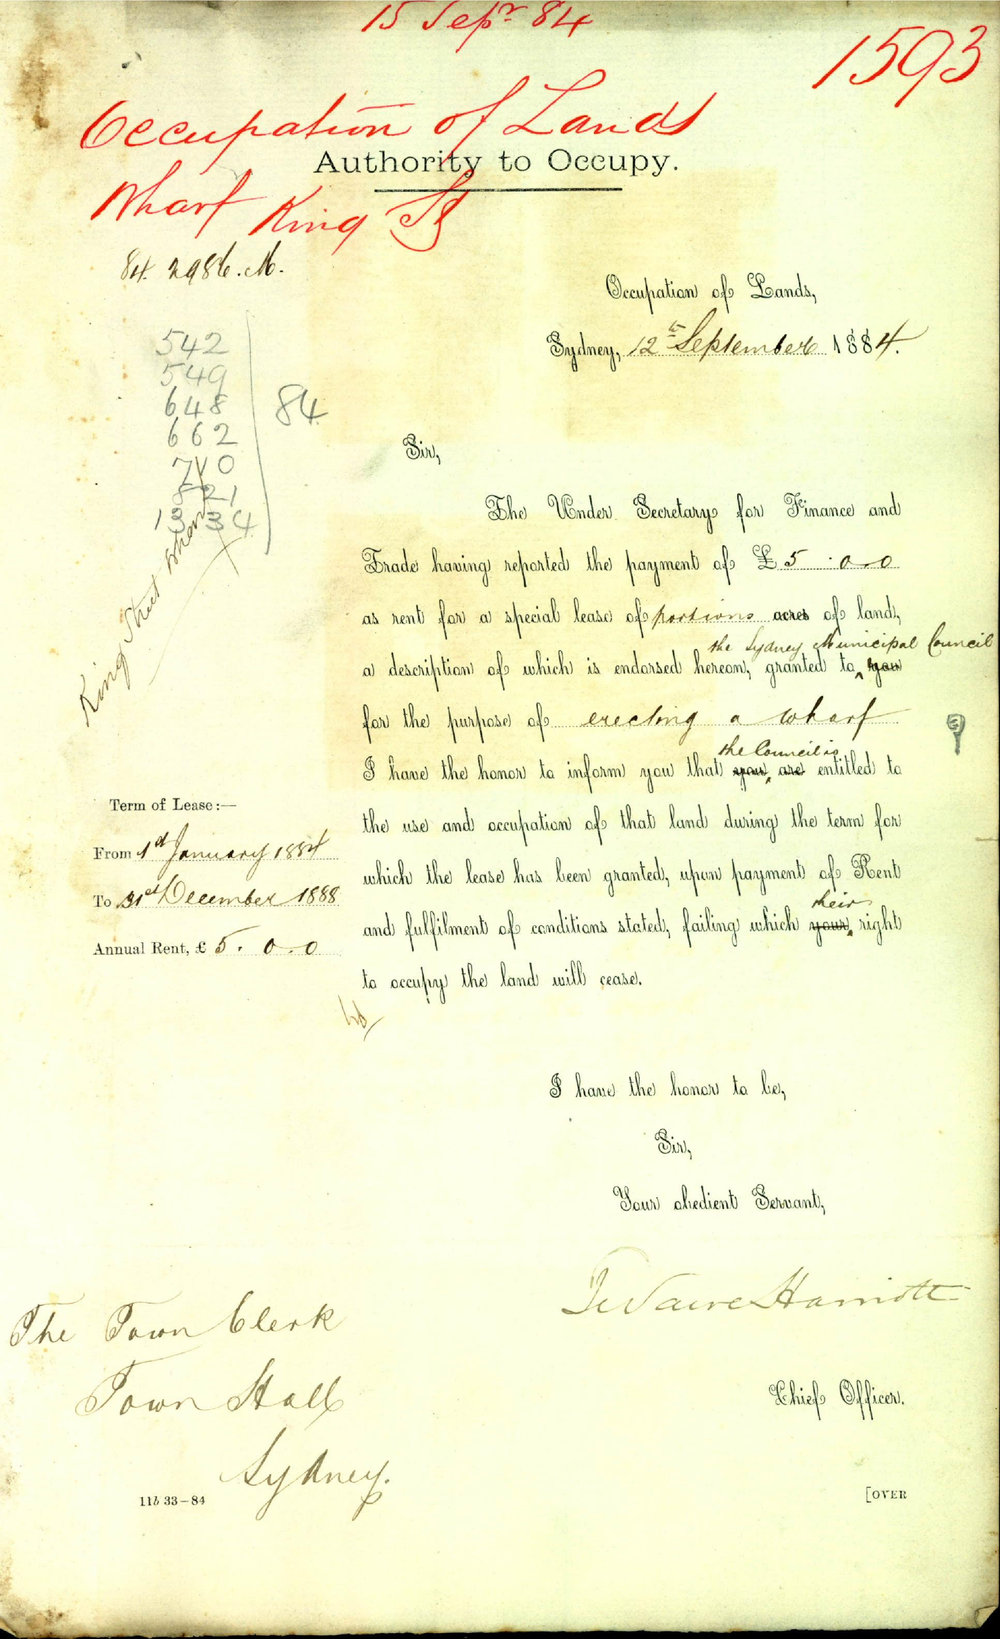 15 Sepr 84
1593
Occupation of Lands
Authority to Occupy.
Wharf King St
84. 2986. M.
Occupation of Lands,
Sydney, 12th September 1884.
542
549
648
662
710
821
1334
84
King Street Wharf
Sir,
The Under Secretary for Finance and
Trade having reported the payment of £5.0.0
as rent for a special lease of portions acres of land,
the Sydney Municipal Council
a description of which is endorsed hereon, granted to you
for the purpose of erecting a wharf
the Council is
I have the honor to inform you that you are entitled to
the use and occupation of that land during the term for
which the lease has been granted, upon payment of Rent
their
and fulfilment of conditions stated, failing which your right
to occupy the land will cease.
Term of Lease:—
From 1st January 1884
To 31st December 1888
Annual Rent, £5.0.0
I have the honor to be,
Sir,
Your obedient Servant,
Harriott
Chief Officer.
The Town Clerk
Town Hall
Sydney.
11b 33–84
[OVER